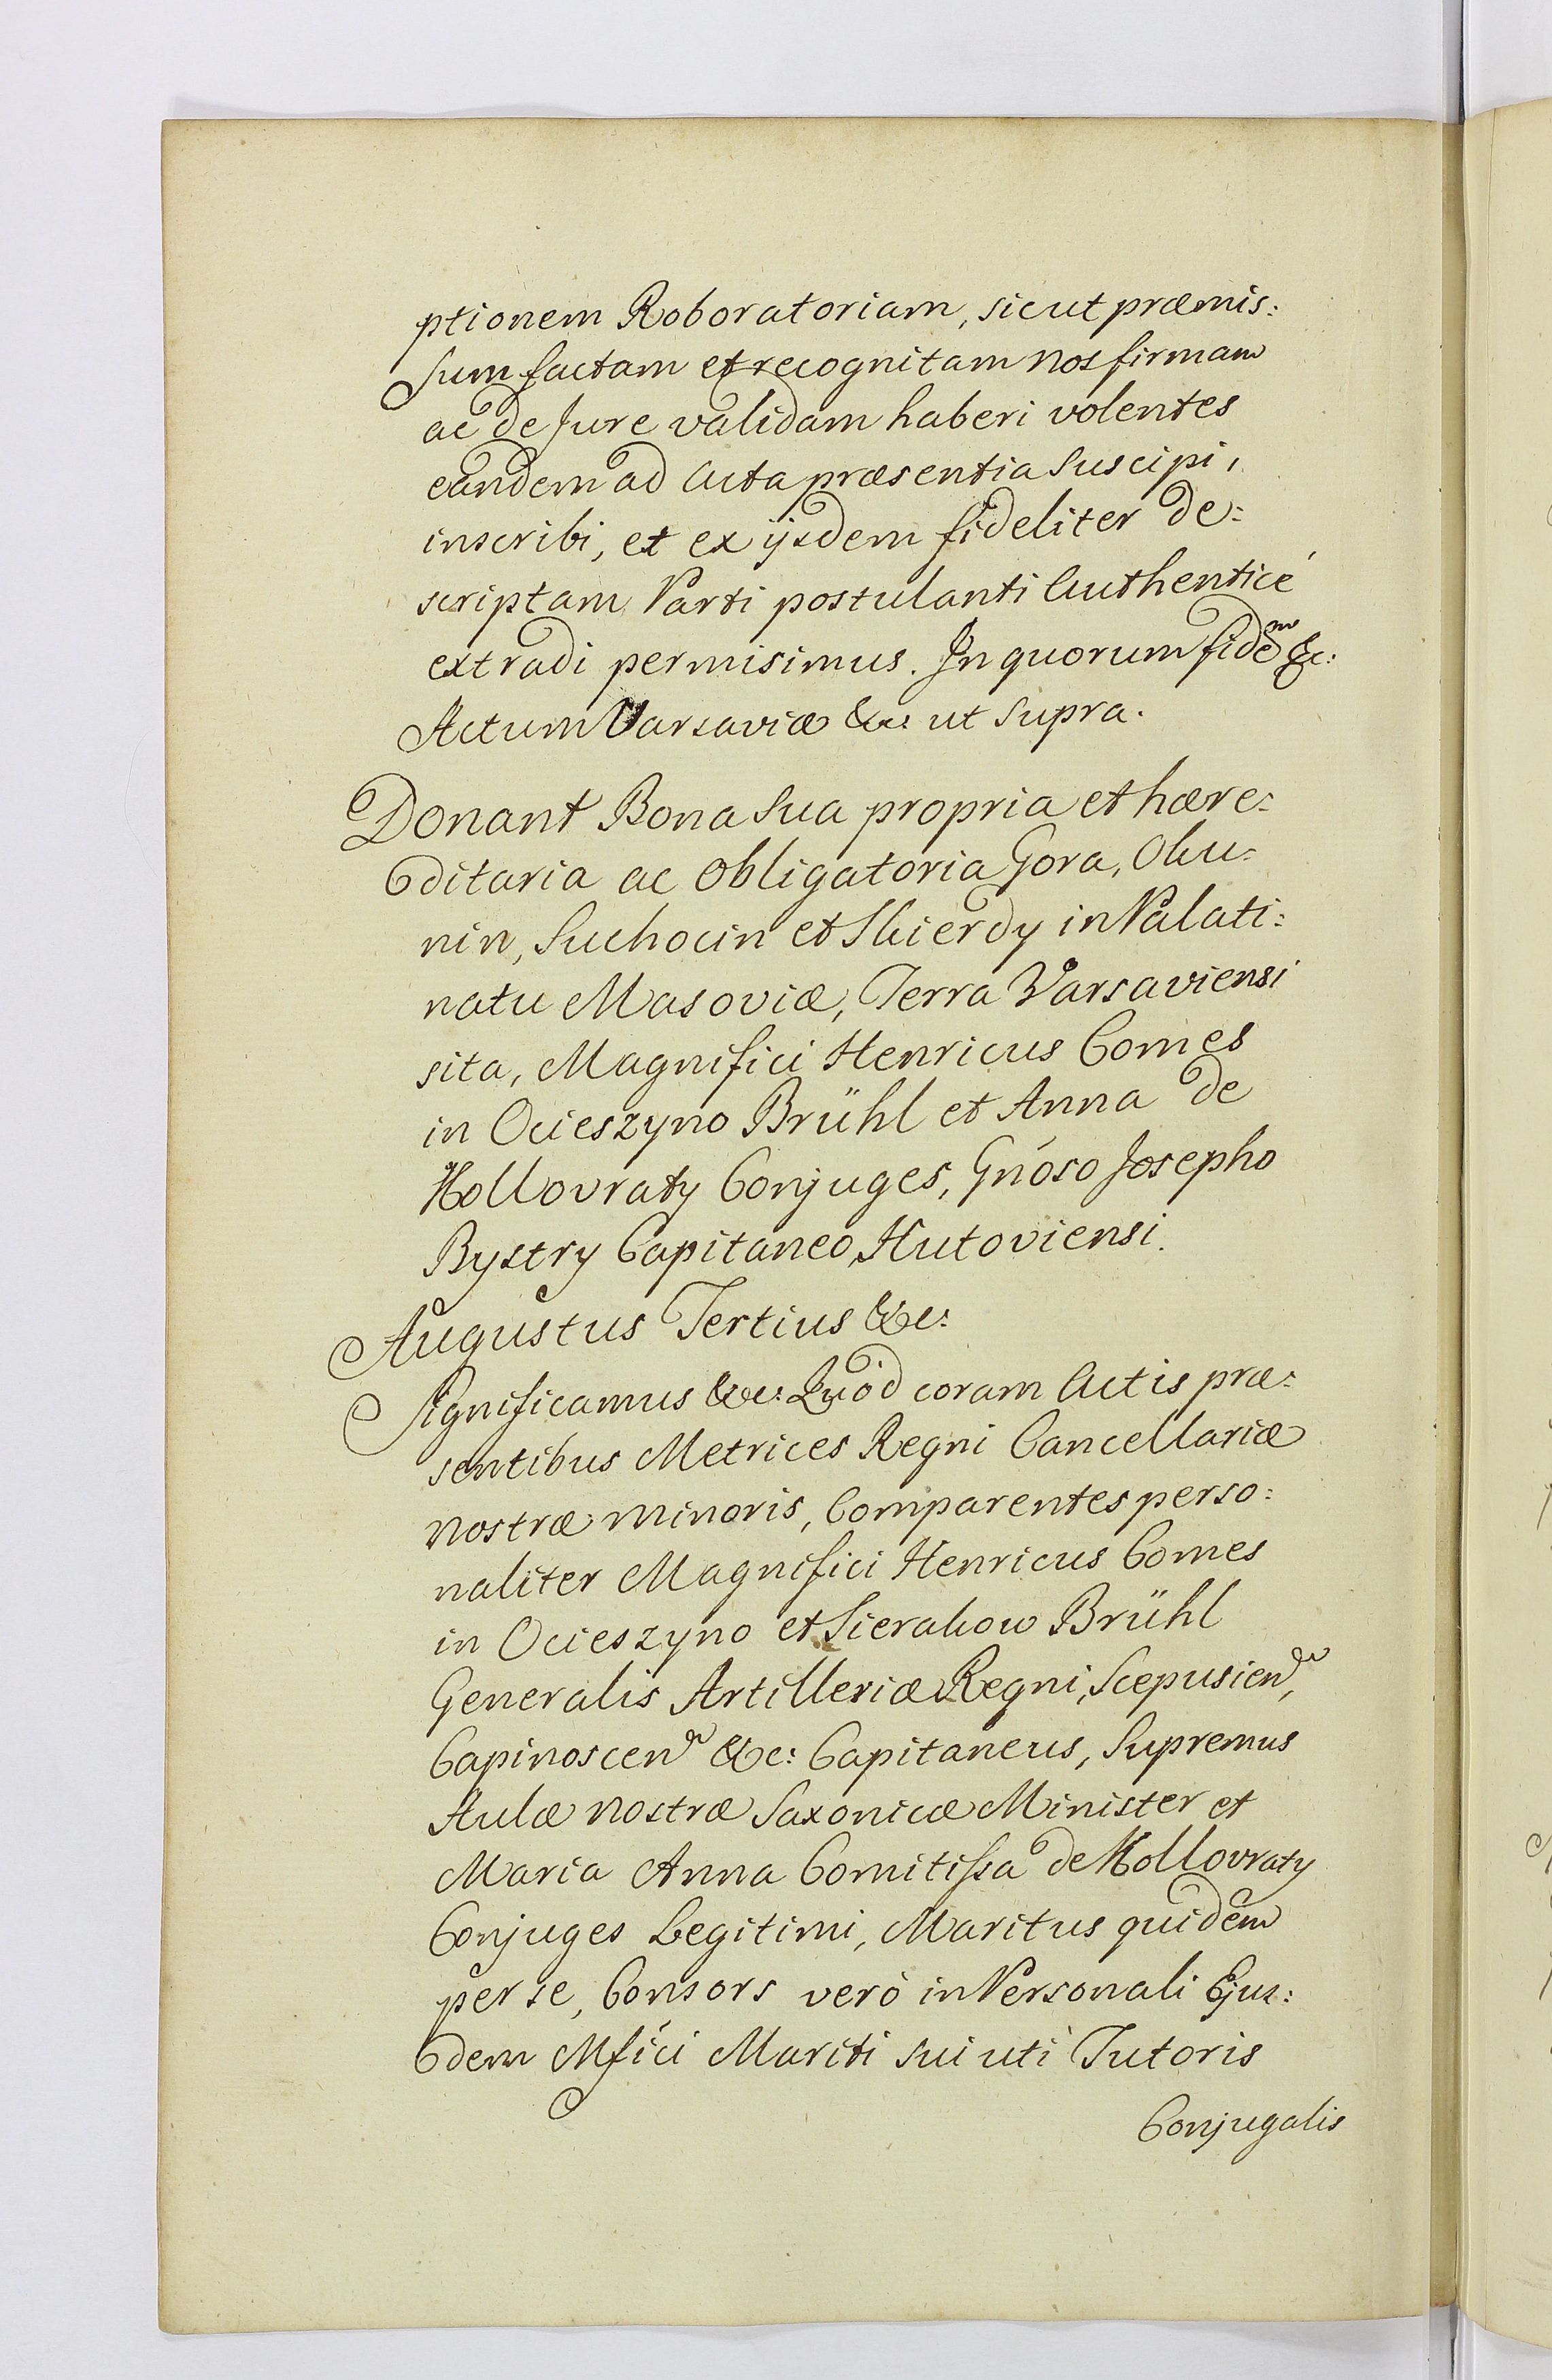 ptionem Roboratoriam, sicut præmis:
sum factam et recognitam nos firmam
ac de Jure validam haberi volentes
eandem ad Acta præsentia Suscipi,
inscribi, et ex ijsdem fideliter de:
scriptam Parti postulanti Authenticé
extradi permisimus. In quorum fidem &c:
Actum Varsaviæ &c: ut Supra.
Donant Bona Sua propria et hære:
ditaria ac Obligatoria Gora, Oku:
nin, Suchocin et Skierdy in Palati:
natu Masoviæ, Terra Varsaviensi
sita, Magnifici Henricus Comes
in Ocieszyno Brühl et Anna de
Kollovraty Conjuges, Gnóso Josepho
Bystry Capitaneo Hutoviensi.
Augustus Tertius &c:
Significamus &c: Quòd coram Actis præ:
sentibus Metrices Regni Cancellariæ
Nostræ Minoris, Comparentes perso:
naliter Magnifici Henricus Comes
in Ocieszyno et Sierakow Brühl
Generalis Artilleriæ Regni, Scepusien,
Capinoscen &c: Capitaneus, Supremus
Aulæ Nostræ Saxonicæ Minister et
Maria Anna Comitissa de Kollovraty
Conjuges Legitimi, Maritus quidem
per se, Consors verò in Personali Ejus:
dem Mfici Mariti sui uti Tutoris
Conjugalis